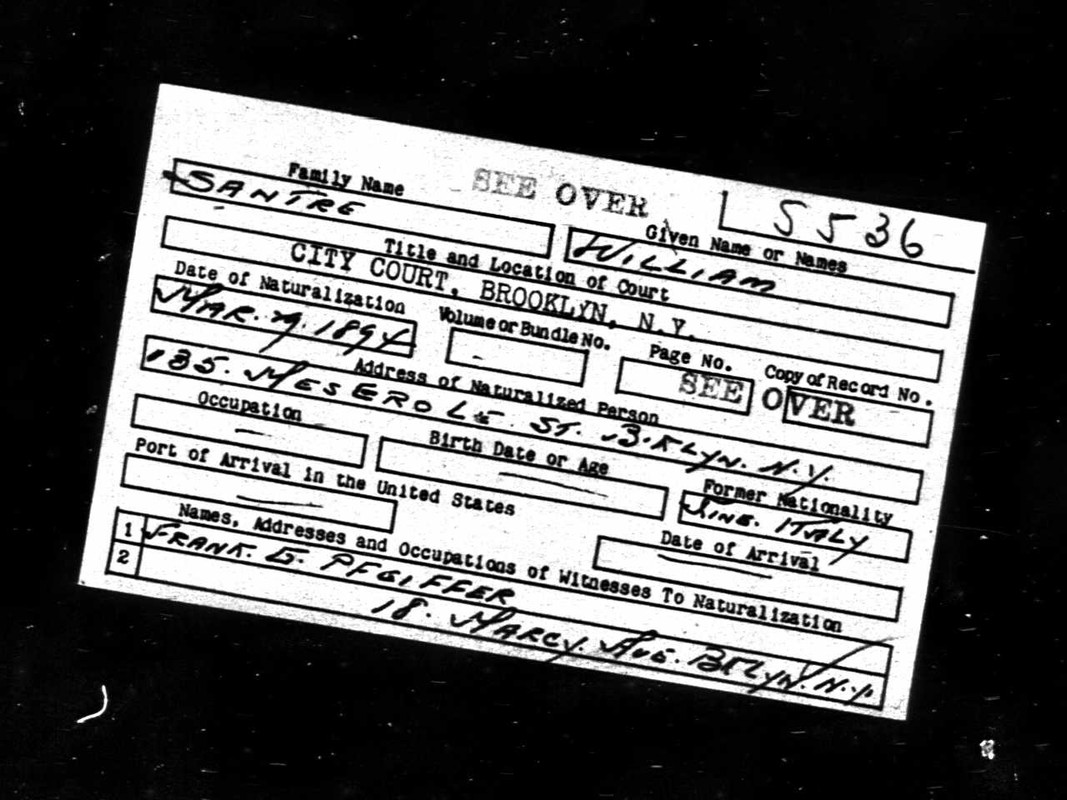 SEE OVER
5536
Family Name
SANTRE
Given Name or Names
WILLIAM
Title and Location of Court
CITY COURT, BROOKLYN, N.Y.
Date of Naturalization
MAR. 1894
Volume or Bundle No.
-
Page No.
Copy of Record No.
SEE OVER
Address of Naturalized Person
135. MESEROLE. ST. BKLYN. N.Y.
Occupation
—
Birth Date or Age
—
Former Nationality
KING. ITALY
Port of Arrival in the United States
—
Date of Arrival
—
Names, Addresses and Occupations of Witnesses To Naturalization
1 FRANK. G. PFEIFFER
2 18. MARCY. AVE. BKLYN. N.Y.